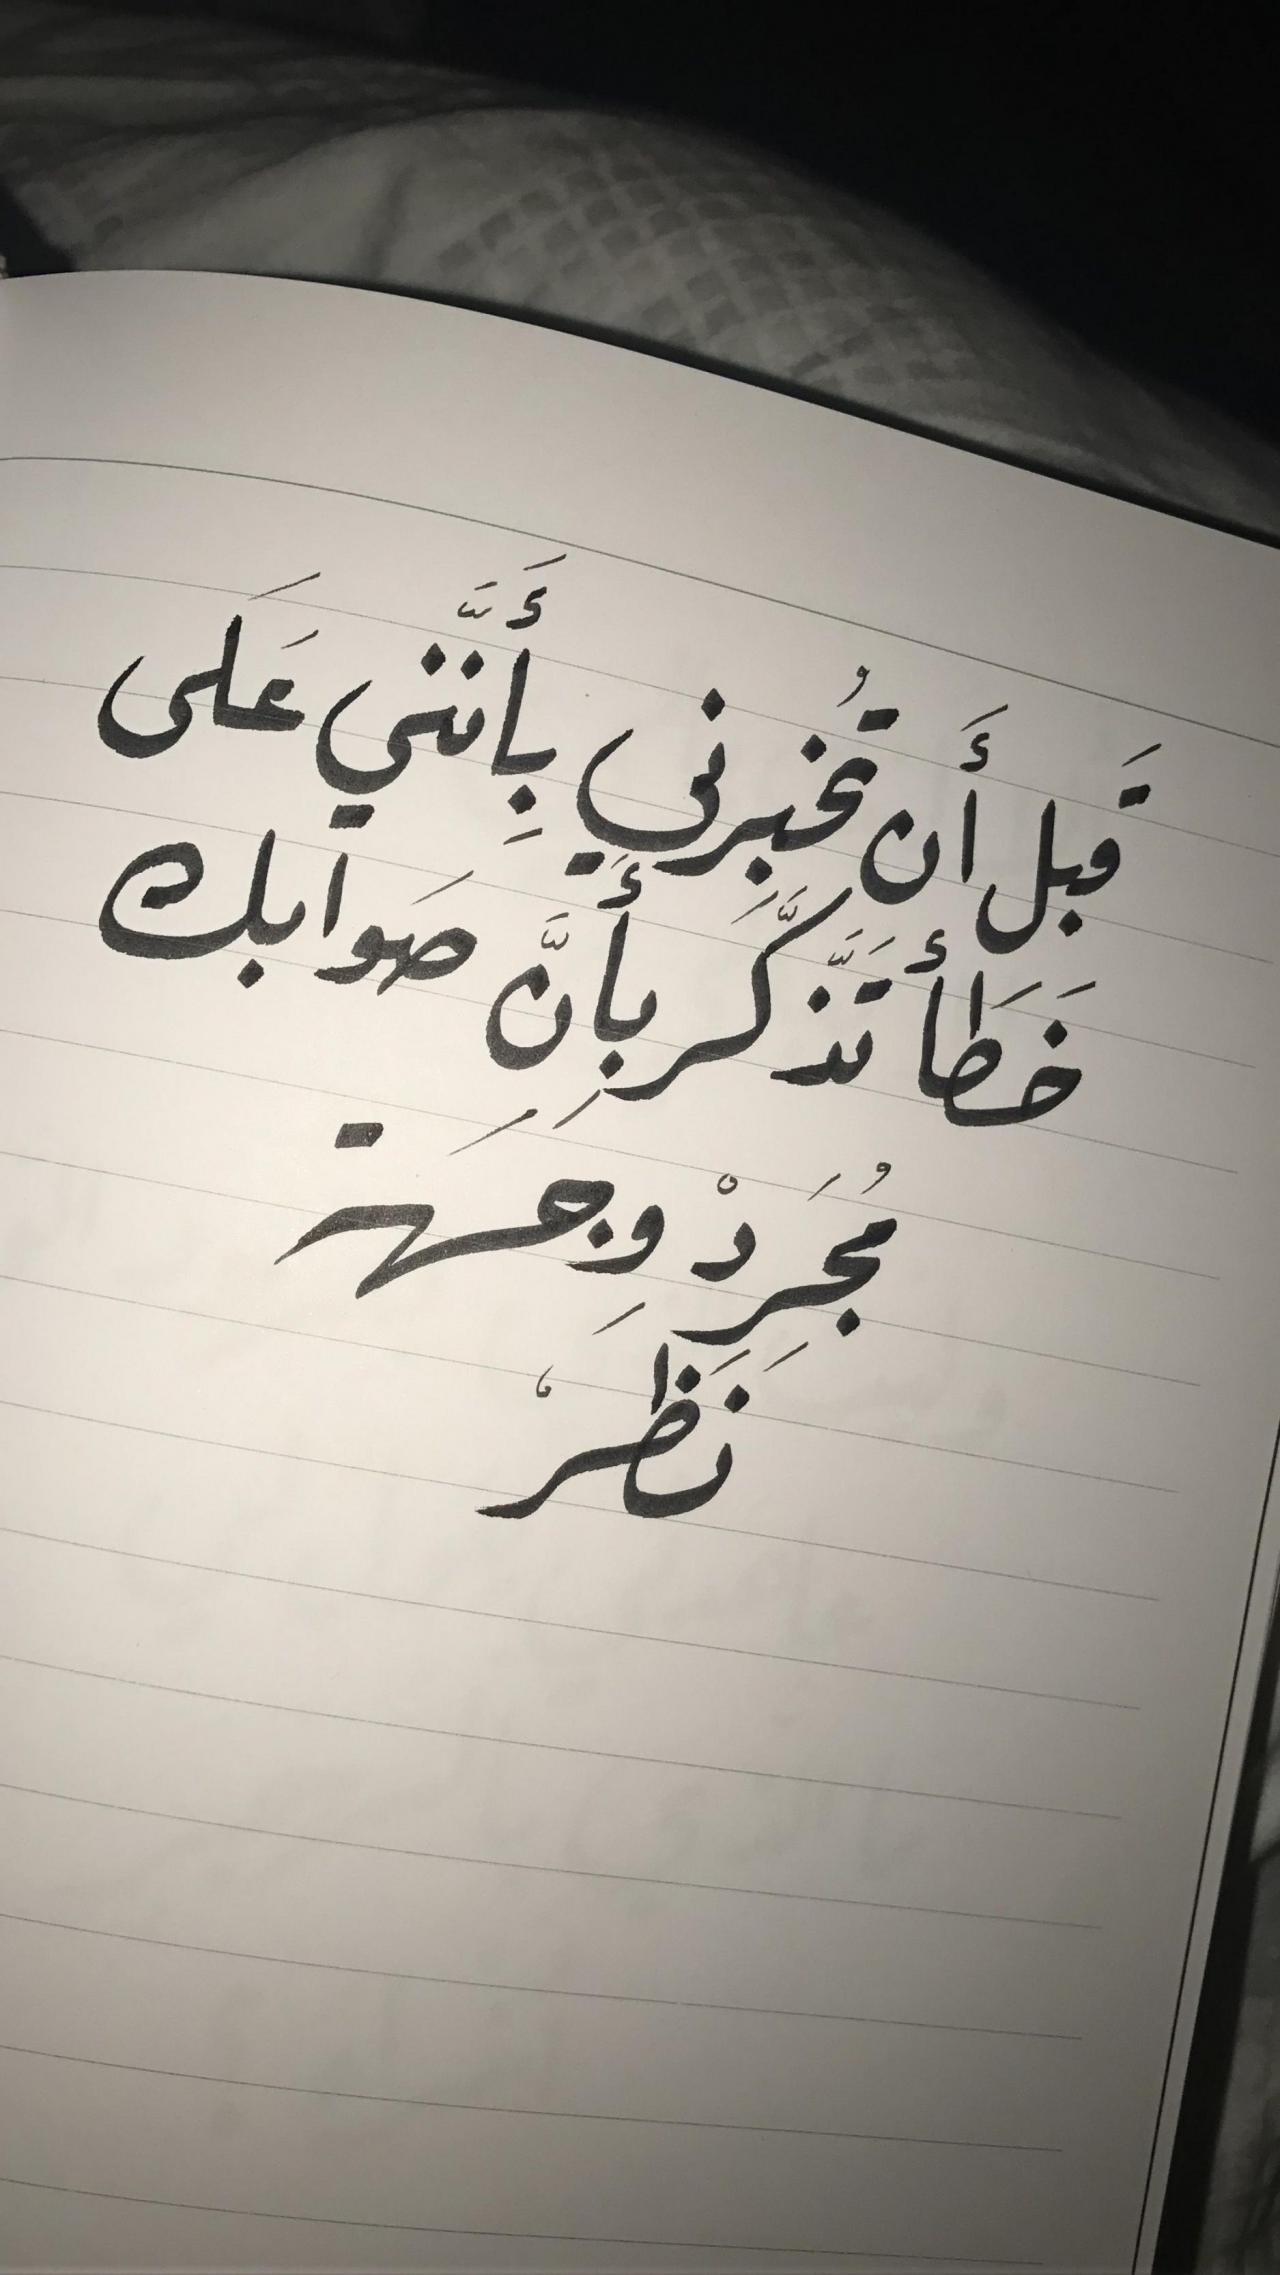 قَبل أَن تُخبرِني بِأَنَّني عَلَى
خَطَأ تَذَّكَّر بِأَنَّ صَوابك
مُجَرِدْ وِجهَِة
نَظرْ